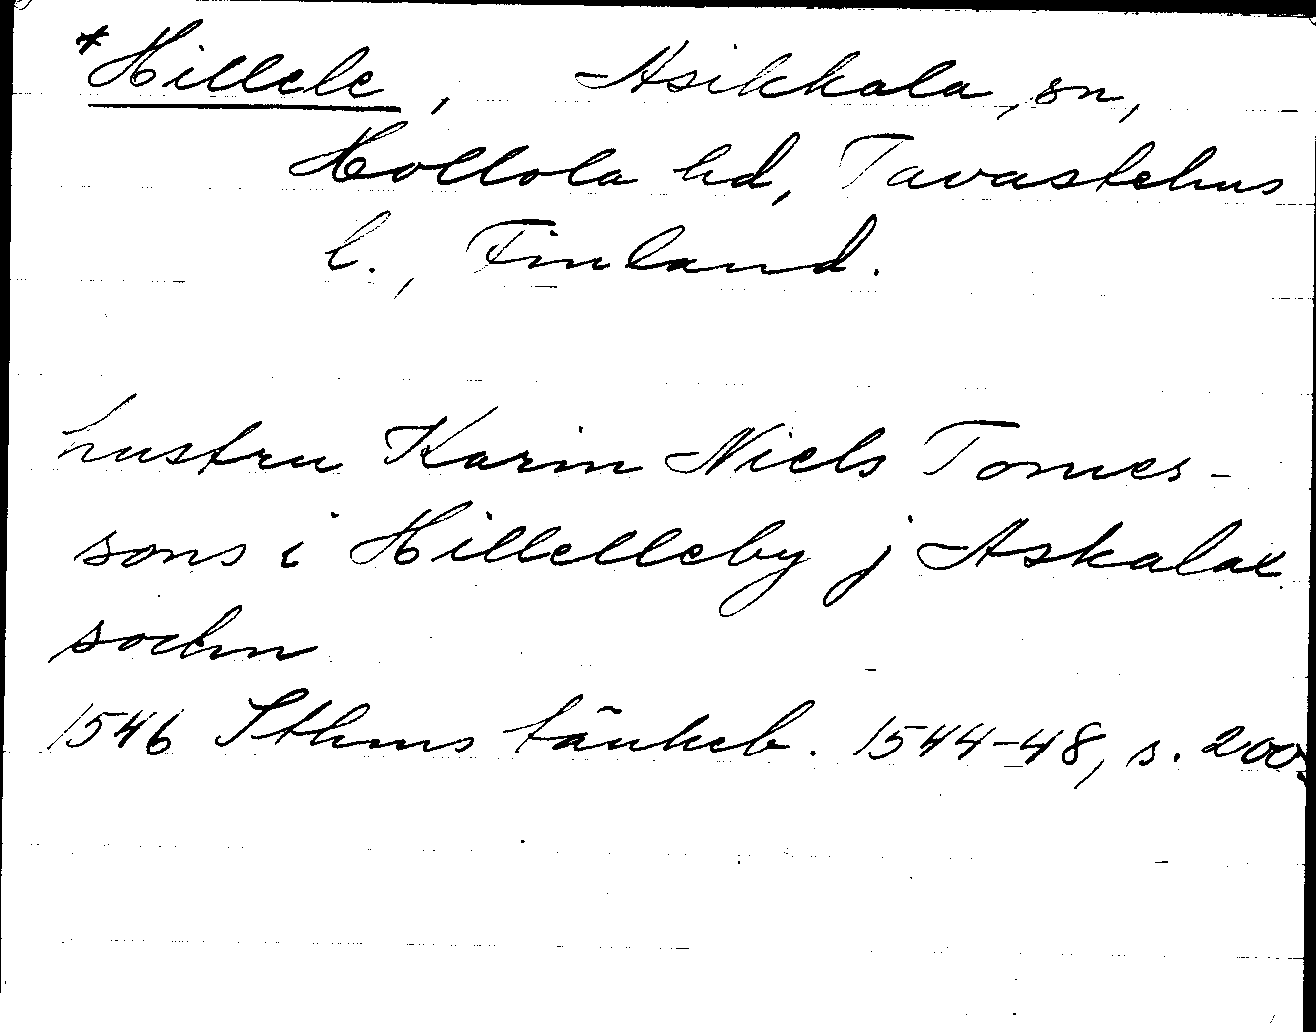 *Hillele, Asikkala, sn,
Hollola hd, Tavastehus
l., Finland.
hustru Karin Niels Tomes-
sons i Hillelleby j Askalax
sochn
1546 Sthms tänkeb. 1544-48, s. 200